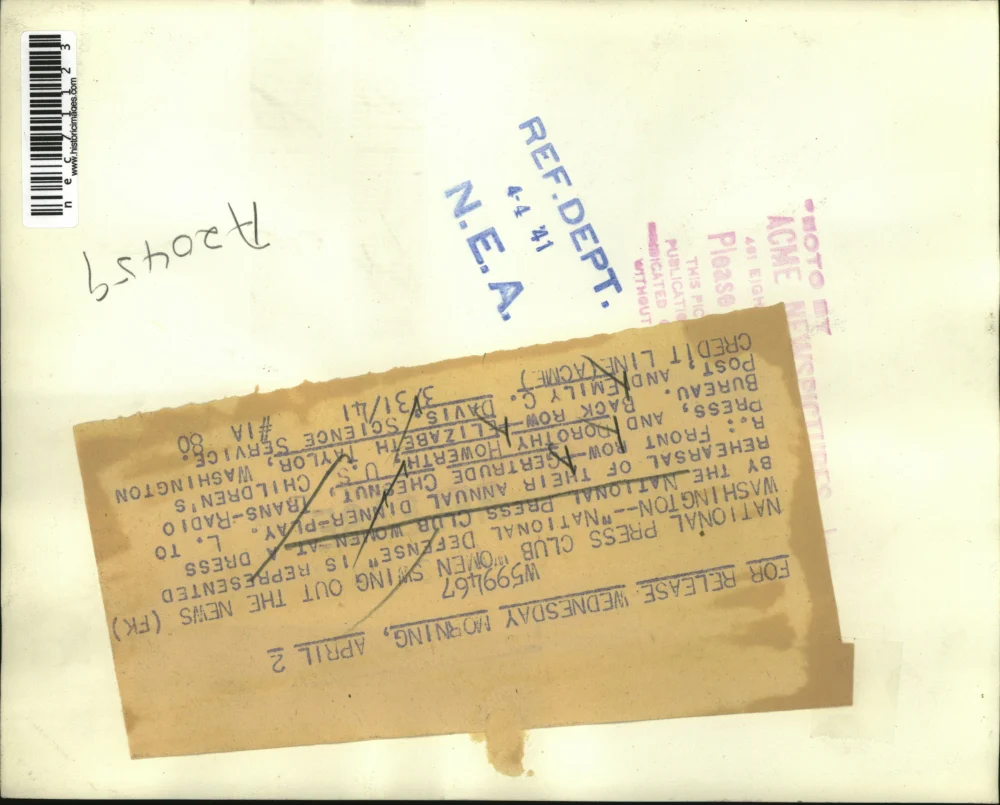 FOR RELEASE WEDNESDAY MORNING, APRIL 2
W599467
NATIONAL PRESS CLUB WOMEN SWING OUT THE NEWS (FK)
WASHINGTON--"NATIONAL DEFENSE" IS REPRESENTED
BY THE NATIONAL PRESS CLUB WOMEN AT A DRESS
REHEARSAL OF THEIR ANNUAL DINNER-PLAY. L. TO
R.: FRONT ROW--GERTRUDE CHESNUT, TRANS-RADIO
PRESS, AND DOROTHY HOWERTH, U.S. CHILDREN'S
BUREAU. BACK ROW--ELIZABETH TAYLOR, WASHINGTON
POST, AND EMILY C. DAVIS, SCIENCE SERVICE.
CREDIT LINE (ACME) 3/31/41 #1A 80
REF. DEPT.
4-4 '41
N. E. A.
A20459
PHOTO BY
ACME NEWSPICTURES
461 EIGH
Please
THIS PIC
PUBLICATI
WITHOUT
www.historicimages.com
nec71123